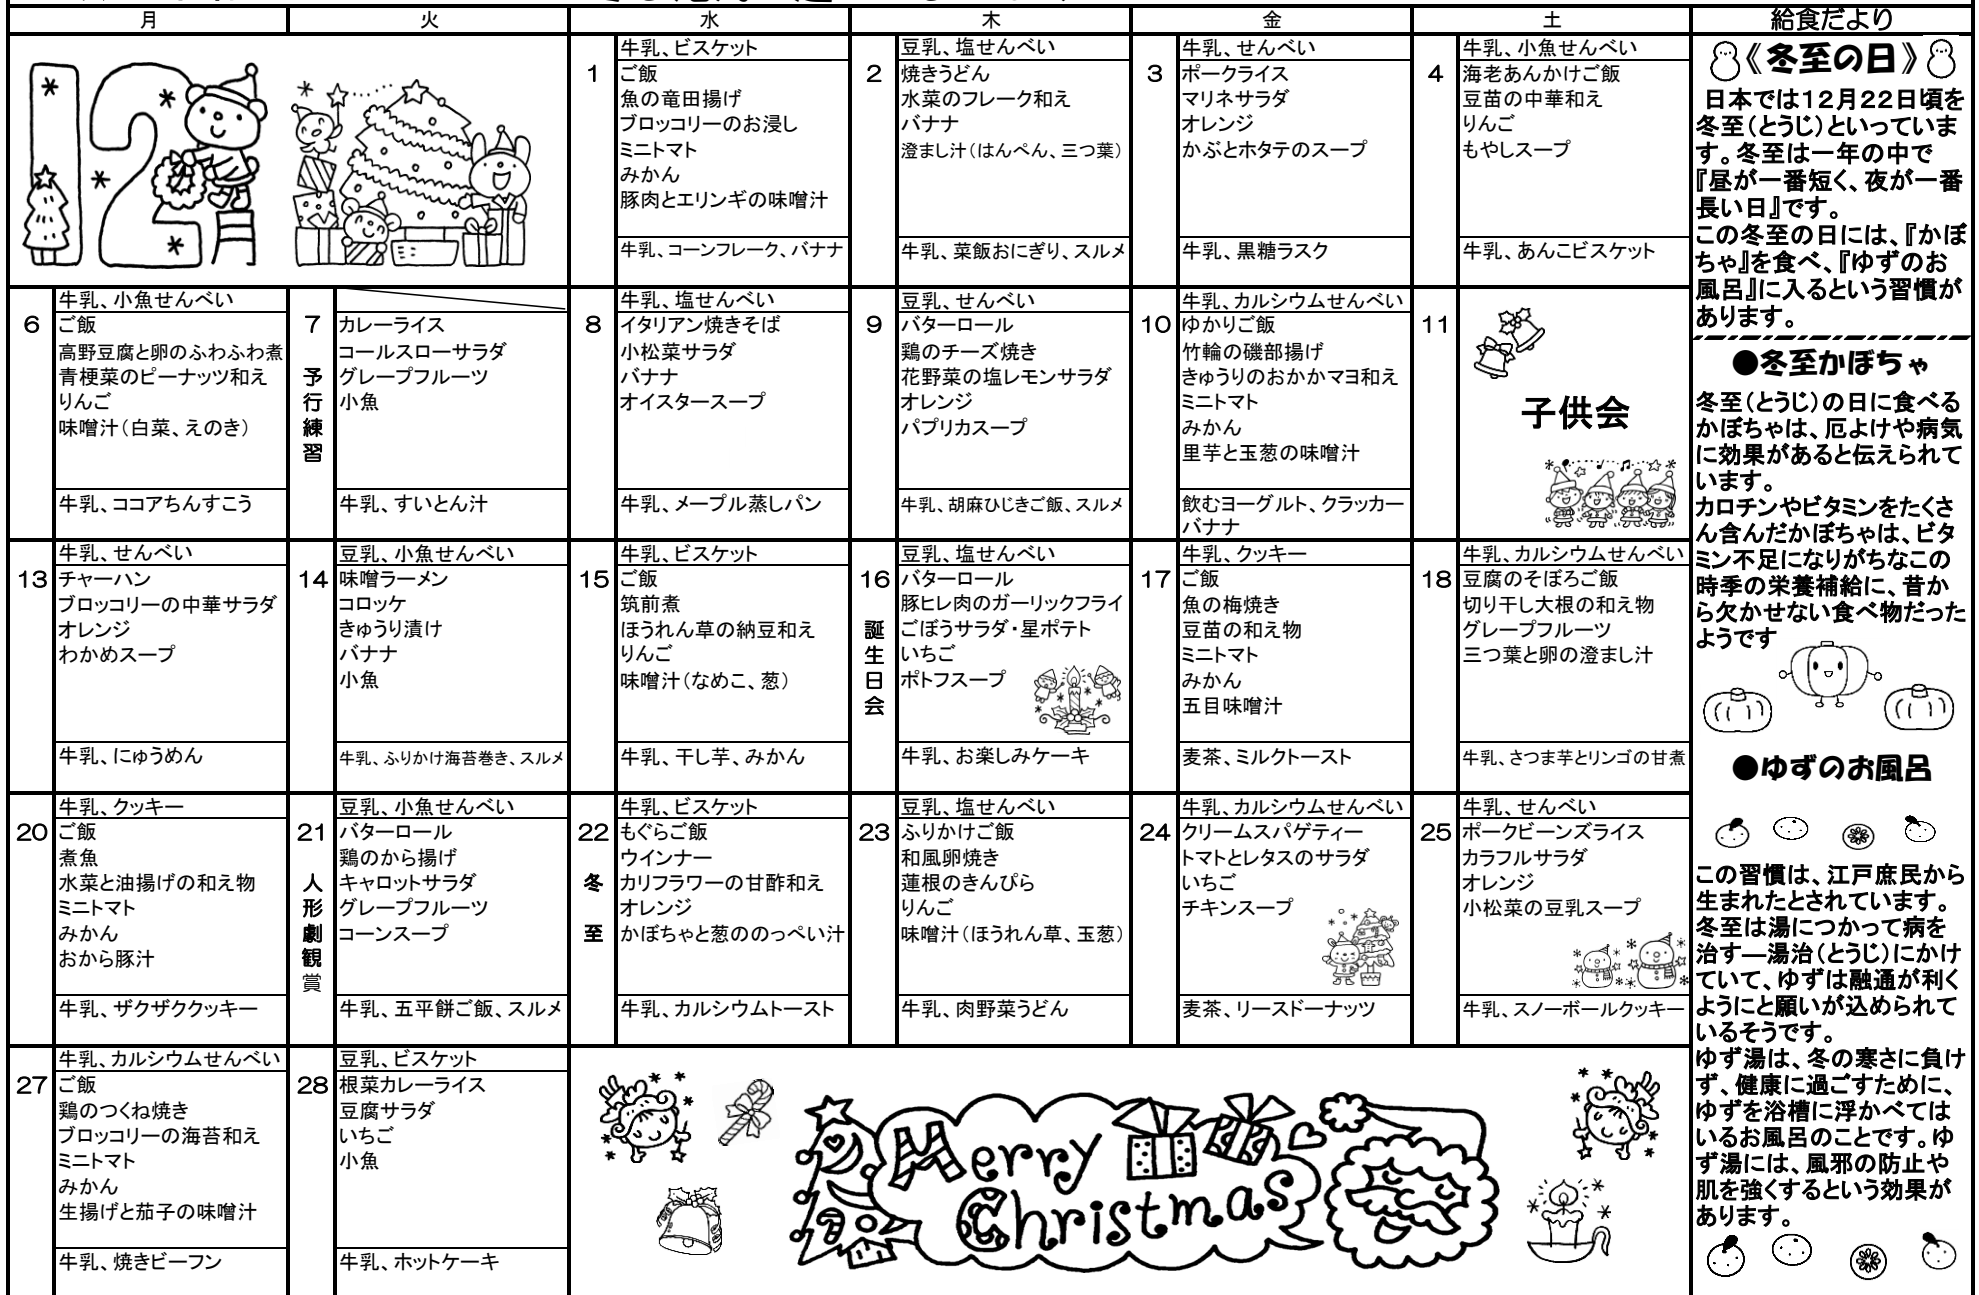 月 火 水 木 金 土 給食だより
12
1
牛乳、ビスケット
ご飯
魚の竜田揚げ
ブロッコリーのお浸し
ミニトマト
みかん
豚肉とエリンギの味噌汁
牛乳、コーンフレーク、バナナ
2
豆乳、塩せんべい
焼きうどん
水菜のフレーク和え
バナナ
澄まし汁（はんぺん、三つ葉）
牛乳、菜飯おにぎり、スルメ
3
牛乳、せんべい
ポークライス
マリネサラダ
オレンジ
かぶとホタテのスープ
牛乳、黒糖ラスク
4
牛乳、小魚せんべい
海老あんかけご飯
豆苗の中華和え
りんご
もやしスープ
牛乳、あんこビスケット
6
牛乳、小魚せんべい
ご飯
高野豆腐と卵のふわふわ煮
青梗菜のピーナッツ和え
りんご
味噌汁（白菜、えのき）
牛乳、ココアちんすこう
7
予行練習
カレーライス
コールスローサラダ
グレープフルーツ
小魚
牛乳、すいとん汁
8
牛乳、塩せんべい
イタリアン焼きそば
小松菜サラダ
バナナ
オイスタースープ
牛乳、メープル蒸しパン
9
豆乳、せんべい
バターロール
鶏のチーズ焼き
花野菜の塩レモンサラダ
オレンジ
パプリカスープ
牛乳、胡麻ひじきご飯、スルメ
10
牛乳、カルシウムせんべい
ゆかりご飯
竹輪の磯部揚げ
きゅうりのおかかマヨ和え
ミニトマト
みかん
里芋と玉葱の味噌汁
飲むヨーグルト、クラッカー
バナナ
11
子供会
13
牛乳、せんべい
チャーハン
ブロッコリーの中華サラダ
オレンジ
わかめスープ
牛乳、にゅうめん
14
豆乳、小魚せんべい
味噌ラーメン
コロッケ
きゅうり漬け
バナナ
小魚
牛乳、ふりかけ海苔巻き、スルメ
15
牛乳、ビスケット
ご飯
筑前煮
ほうれん草の納豆和え
りんご
味噌汁（なめこ、葱）
牛乳、干し芋、みかん
16
誕生日会
豆乳、塩せんべい
バターロール
豚ヒレ肉のガーリックフライ
ごぼうサラダ・星ポテト
いちご
ポトフスープ
牛乳、お楽しみケーキ
17
牛乳、クッキー
ご飯
魚の梅焼き
豆苗の和え物
ミニトマト
みかん
五目味噌汁
麦茶、ミルクトースト
18
牛乳、カルシウムせんべい
豆腐のそぼろご飯
切り干し大根の和え物
グレープフルーツ
三つ葉と卵の澄まし汁
牛乳、さつま芋とリンゴの甘煮
20
牛乳、クッキー
ご飯
煮魚
水菜と油揚げの和え物
ミニトマト
みかん
おから豚汁
牛乳、ザクザククッキー
21
人形劇観賞
豆乳、小魚せんべい
バターロール
鶏のから揚げ
キャロットサラダ
グレープフルーツ
コーンスープ
牛乳、五平餅ご飯、スルメ
22
冬至
牛乳、ビスケット
もぐらご飯
ウインナー
カリフラワーの甘酢和え
オレンジ
かぼちゃと葱ののっぺい汁
牛乳、カルシウムトースト
23
豆乳、塩せんべい
ふりかけご飯
和風卵焼き
蓮根のきんぴら
りんご
味噌汁（ほうれん草、玉葱）
牛乳、肉野菜うどん
24
牛乳、カルシウムせんべい
クリームスパゲティー
トマトとレタスのサラダ
いちご
チキンスープ
麦茶、リースドーナッツ
25
牛乳、せんべい
ポークビーンズライス
カラフルサラダ
オレンジ
小松菜の豆乳スープ
牛乳、スノーボールクッキー
27
牛乳、カルシウムせんべい
ご飯
鶏のつくね焼き
ブロッコリーの海苔和え
ミニトマト
みかん
生揚げと茄子の味噌汁
牛乳、焼きビーフン
28
豆乳、ビスケット
根菜カレーライス
豆腐サラダ
いちご
小魚
牛乳、ホットケーキ
Merry
Christmas
《冬至の日》
日本では12月22日頃を
冬至（とうじ）といっていま
す。冬至は一年の中で
『昼が一番短く、夜が一番
長い日』です。
この冬至の日には、『かぼ
ちゃ』を食べ、『ゆずのお
風呂』に入るという習慣が
あります。
●冬至かぼちゃ
冬至（とうじ）の日に食べる
かぼちゃは、厄よけや病気
に効果があると伝えられて
います。
カロチンやビタミンをたくさ
ん含んだかぼちゃは、ビタ
ミン不足になりがちなこの
時季の栄養補給に、昔か
ら欠かせない食べ物だった
ようです
●ゆずのお風呂
この習慣は、江戸庶民から
生まれたとされています。
冬至は湯につかって病を
治す―湯治（とうじ）にかけ
ていて、ゆずは融通が利く
ようにと願いが込められて
いるそうです。
ゆず湯は、冬の寒さに負け
ず、健康に過ごすために、
ゆずを浴槽に浮かべては
いるお風呂のことです。ゆ
ず湯には、風邪の防止や
肌を強くするという効果が
あります。